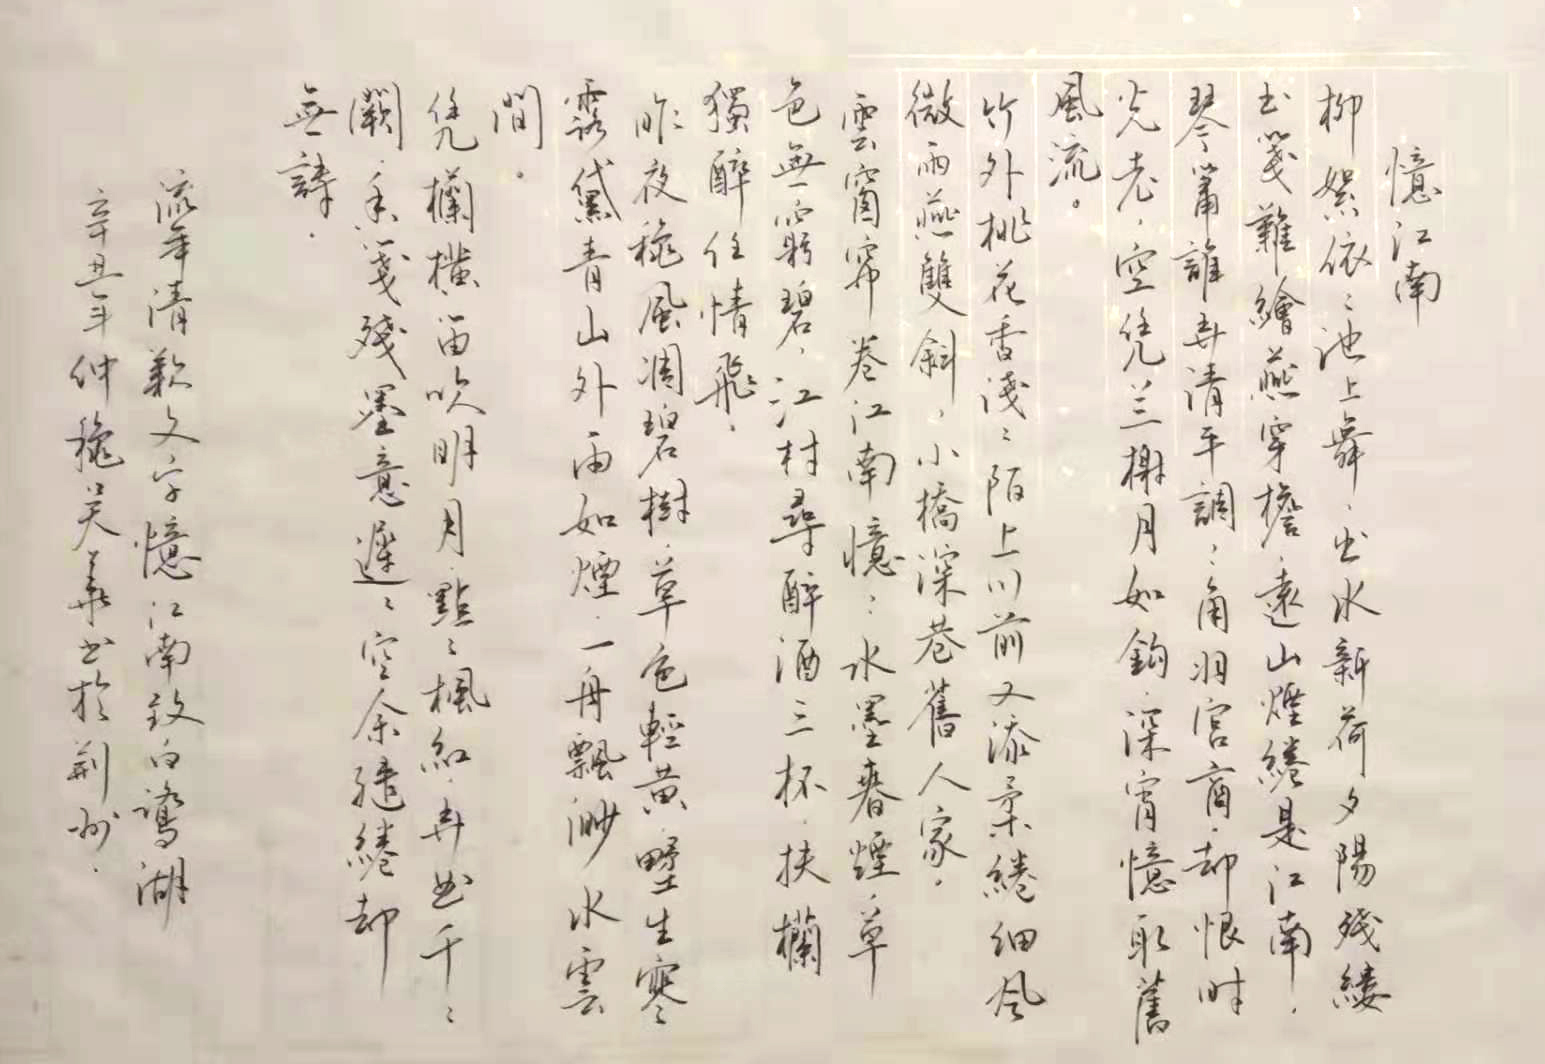 憶江南
柳絮依〻池上舞出水新荷夕陽殘縷
出箋難繪燕穿檐遠山煙綣是江南
琴簫誰弄清平調〻角羽宮商却恨時
光老空凭兰榭月如鉤深宵憶取舊
風流
竹外桃花香淺〻陌上川前又添柔綣细风
微雨燕雙斜小橋深巷舊人家
雲窗帘卷江南憶〻水墨春煙草
色無窮碧江村尋醉酒三杯扶欄
獨醉任情飛
昨夜穐風凋碧樹草色輕黄壁生寒
露黛青山外雨如煙一舟飄渺水雲
間
凭欄橫笛吹明月點〻楓紅弄出千〻
闕香箋殘墨意遲〻空余繾綣却
無詩
流年清歉文字憶江南致白鷺湖
辛丑年仲穐吴華书於荆州